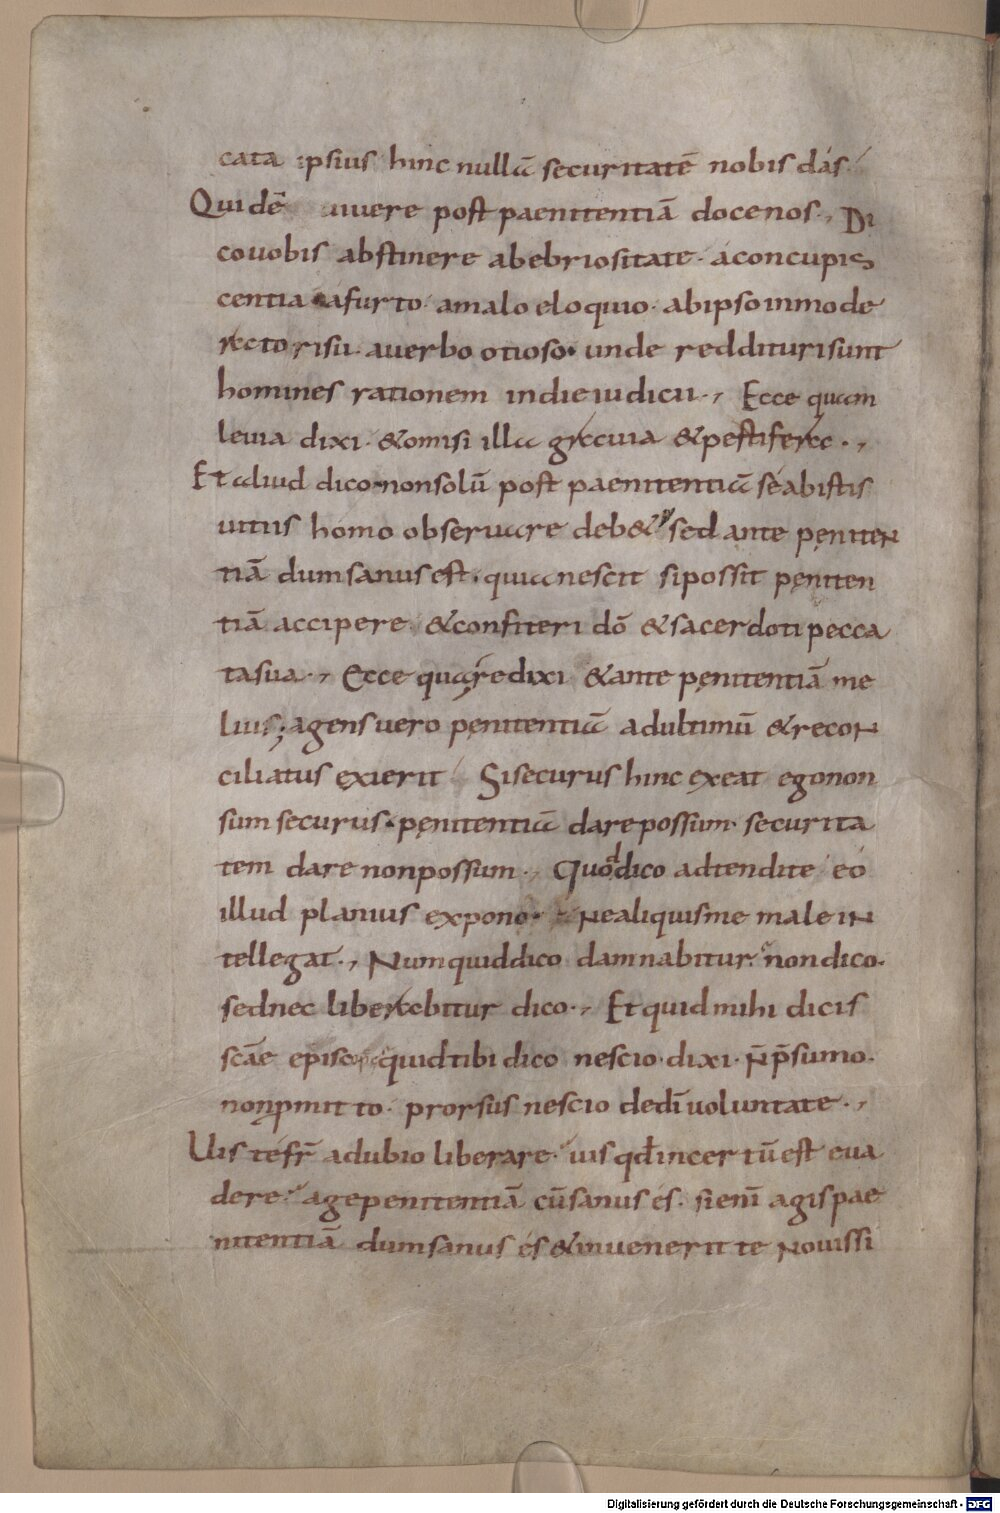 cata ipsius hinc nullā securitatē nobis dás
Qui dē uiuere post paenitentiā doce nos., Di
co uobis abstinere ab ebriositate· á concupis
centia· a furto· a malo eloquio· ab ipso inmode
rato risu· a uerbo otioso· unde reddituri sunt
homines rationem in die iudicii., Ecce quam
leuia dixi· & omisi illa grauia & pestifera.,
Et aliud dico· non solū post paenitentiā sé ab istis
uitiis homo obseruare deb& sed ante pęniten
tiā dum sanus est· quia nescit si possit pęniten
tiā accipere & confiteri dō & sacerdoti pecca
ta sua., Ecce quare dixi & ante pęnitentiā me
lius; agens uero pęnitentiā ad ultimū & recon
ciliatus exierit Si securus hinc exeat ego non
sum securus· pęnitentiā dare possum· securita
tem dare non possum., Quod dico adtendite eó
illud planius expono· Ne aliquis me male in
tellegat., Numquid dico damnabitur? non dico·
sed nec liberabitur dico., Et quid mihi dicis
scāe episcopę quid tibi dico nescio· dixi· n̄ p̄sumo·
non pmitto· prorsus nescio de dī uoluntate.,
Uis te fr̄ a dubio liberare· uis qđ incertū est eua
dere· age penitentiā cū sanus és· si enī agis pae
nitentiā dum sanus és & inuenerit te nouissi
Digitalisierung gefördert durch die Deutsche Forschungsgemeinschaft - DFG